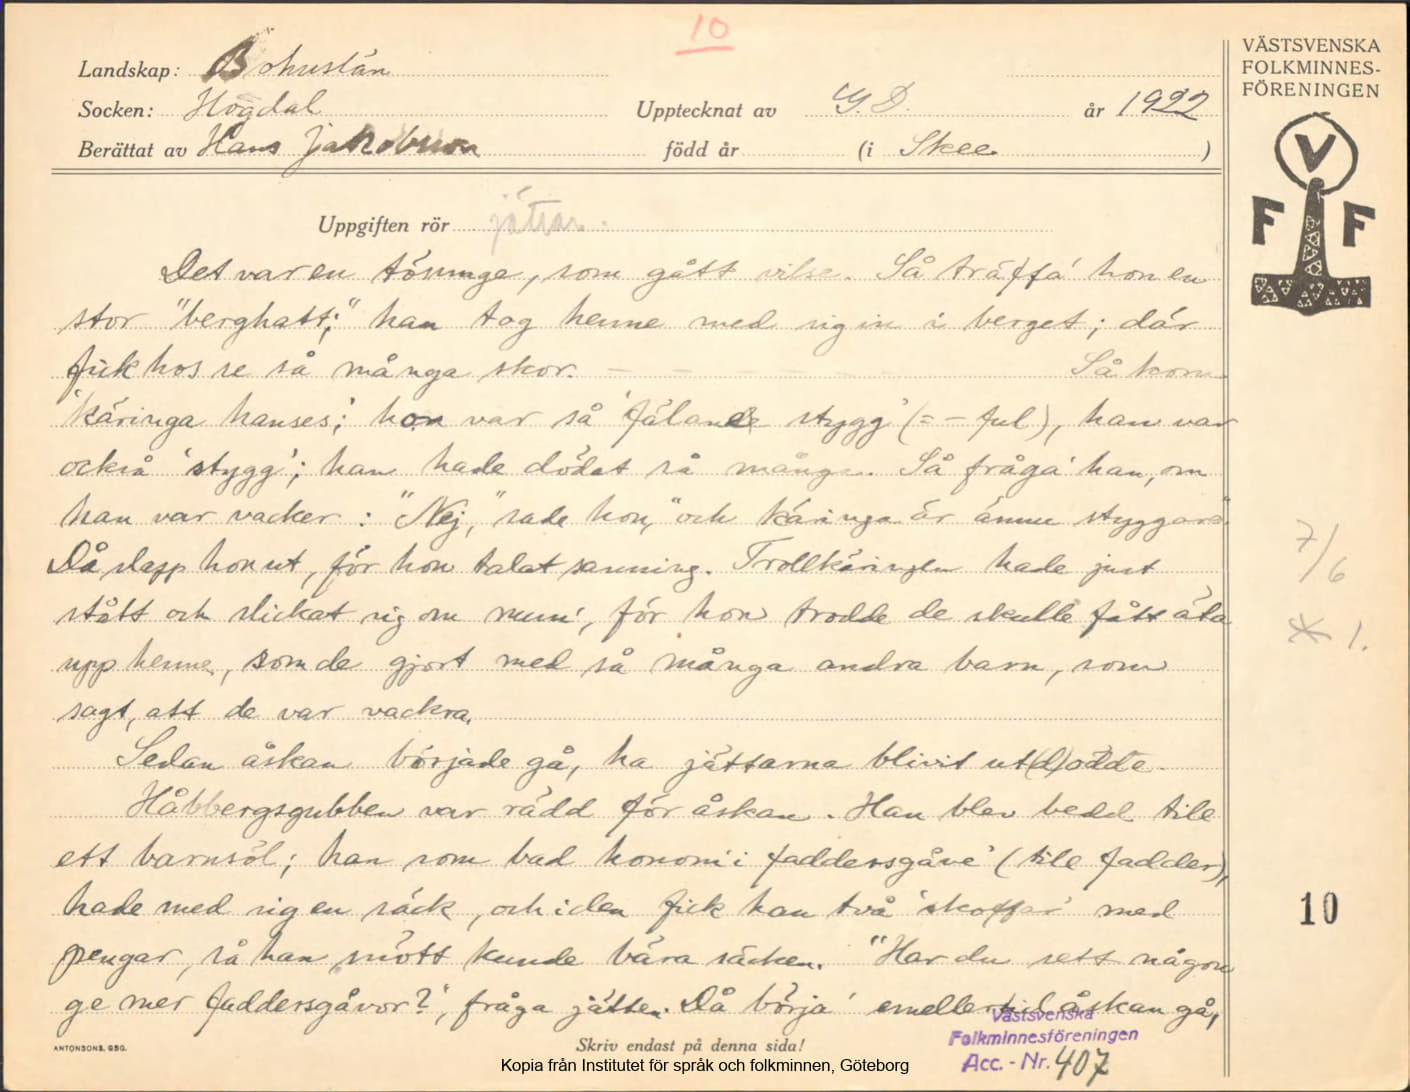 10
Landskap: Bohuslän
Socken: Hogdal Upptecknat av G.D. år 1922
Berättat av Hans Jakobsson född år (i Skee )
VÄSTSVENSKA
FOLKMINNES-
FÖRENINGEN
V
F F
Uppgiften rör jättar.
Det var en tösunge, som gått vilse. Så träffa' hon en
stor "berghatt;" han tog henne med sig in i berget; där
fick hos se så många skor. – – – – – – Så kom
'käringa hanses'; hon var så 'fälande stygg' (= – ful), han var
också 'stygg'; han hade dödat så många. Så fråga' han, om
han var vacker: "Nej," sade hon, "och käringa är ännu styggare".
Då slapp hon ut, för hon talat sanning. Trollkäringen hade just
stått och slickat sig om mun', för hon trodde de skulle fått äta
upp henne, som de gjort med så många andra barn, som
sagt, att de var vackra.
Sedan åskan började gå, ha jättarna blivit ut(d)ödda.
Håbbergsgubben var rädd för åskan. Han blev bedd till
ett barnsöl; han som bad honom 'i faddersgåve' (till fadder),
hade med sig en säck, och i den fick han två 'skoffar' med
pengar, så han smått kunde bära säcken. "Har du sett någon
ge mer faddersgåvor?", fråga jätten. Då börja' emellertid åskan gå,
7/6
* 1.
10
ANTONSONS, GBG.
Skriv endast på denna sida!
Västsvenska
Folkminnesföreningen
Acc. - Nr. 407
Kopia från Institutet för språk och folkminnen, Göteborg